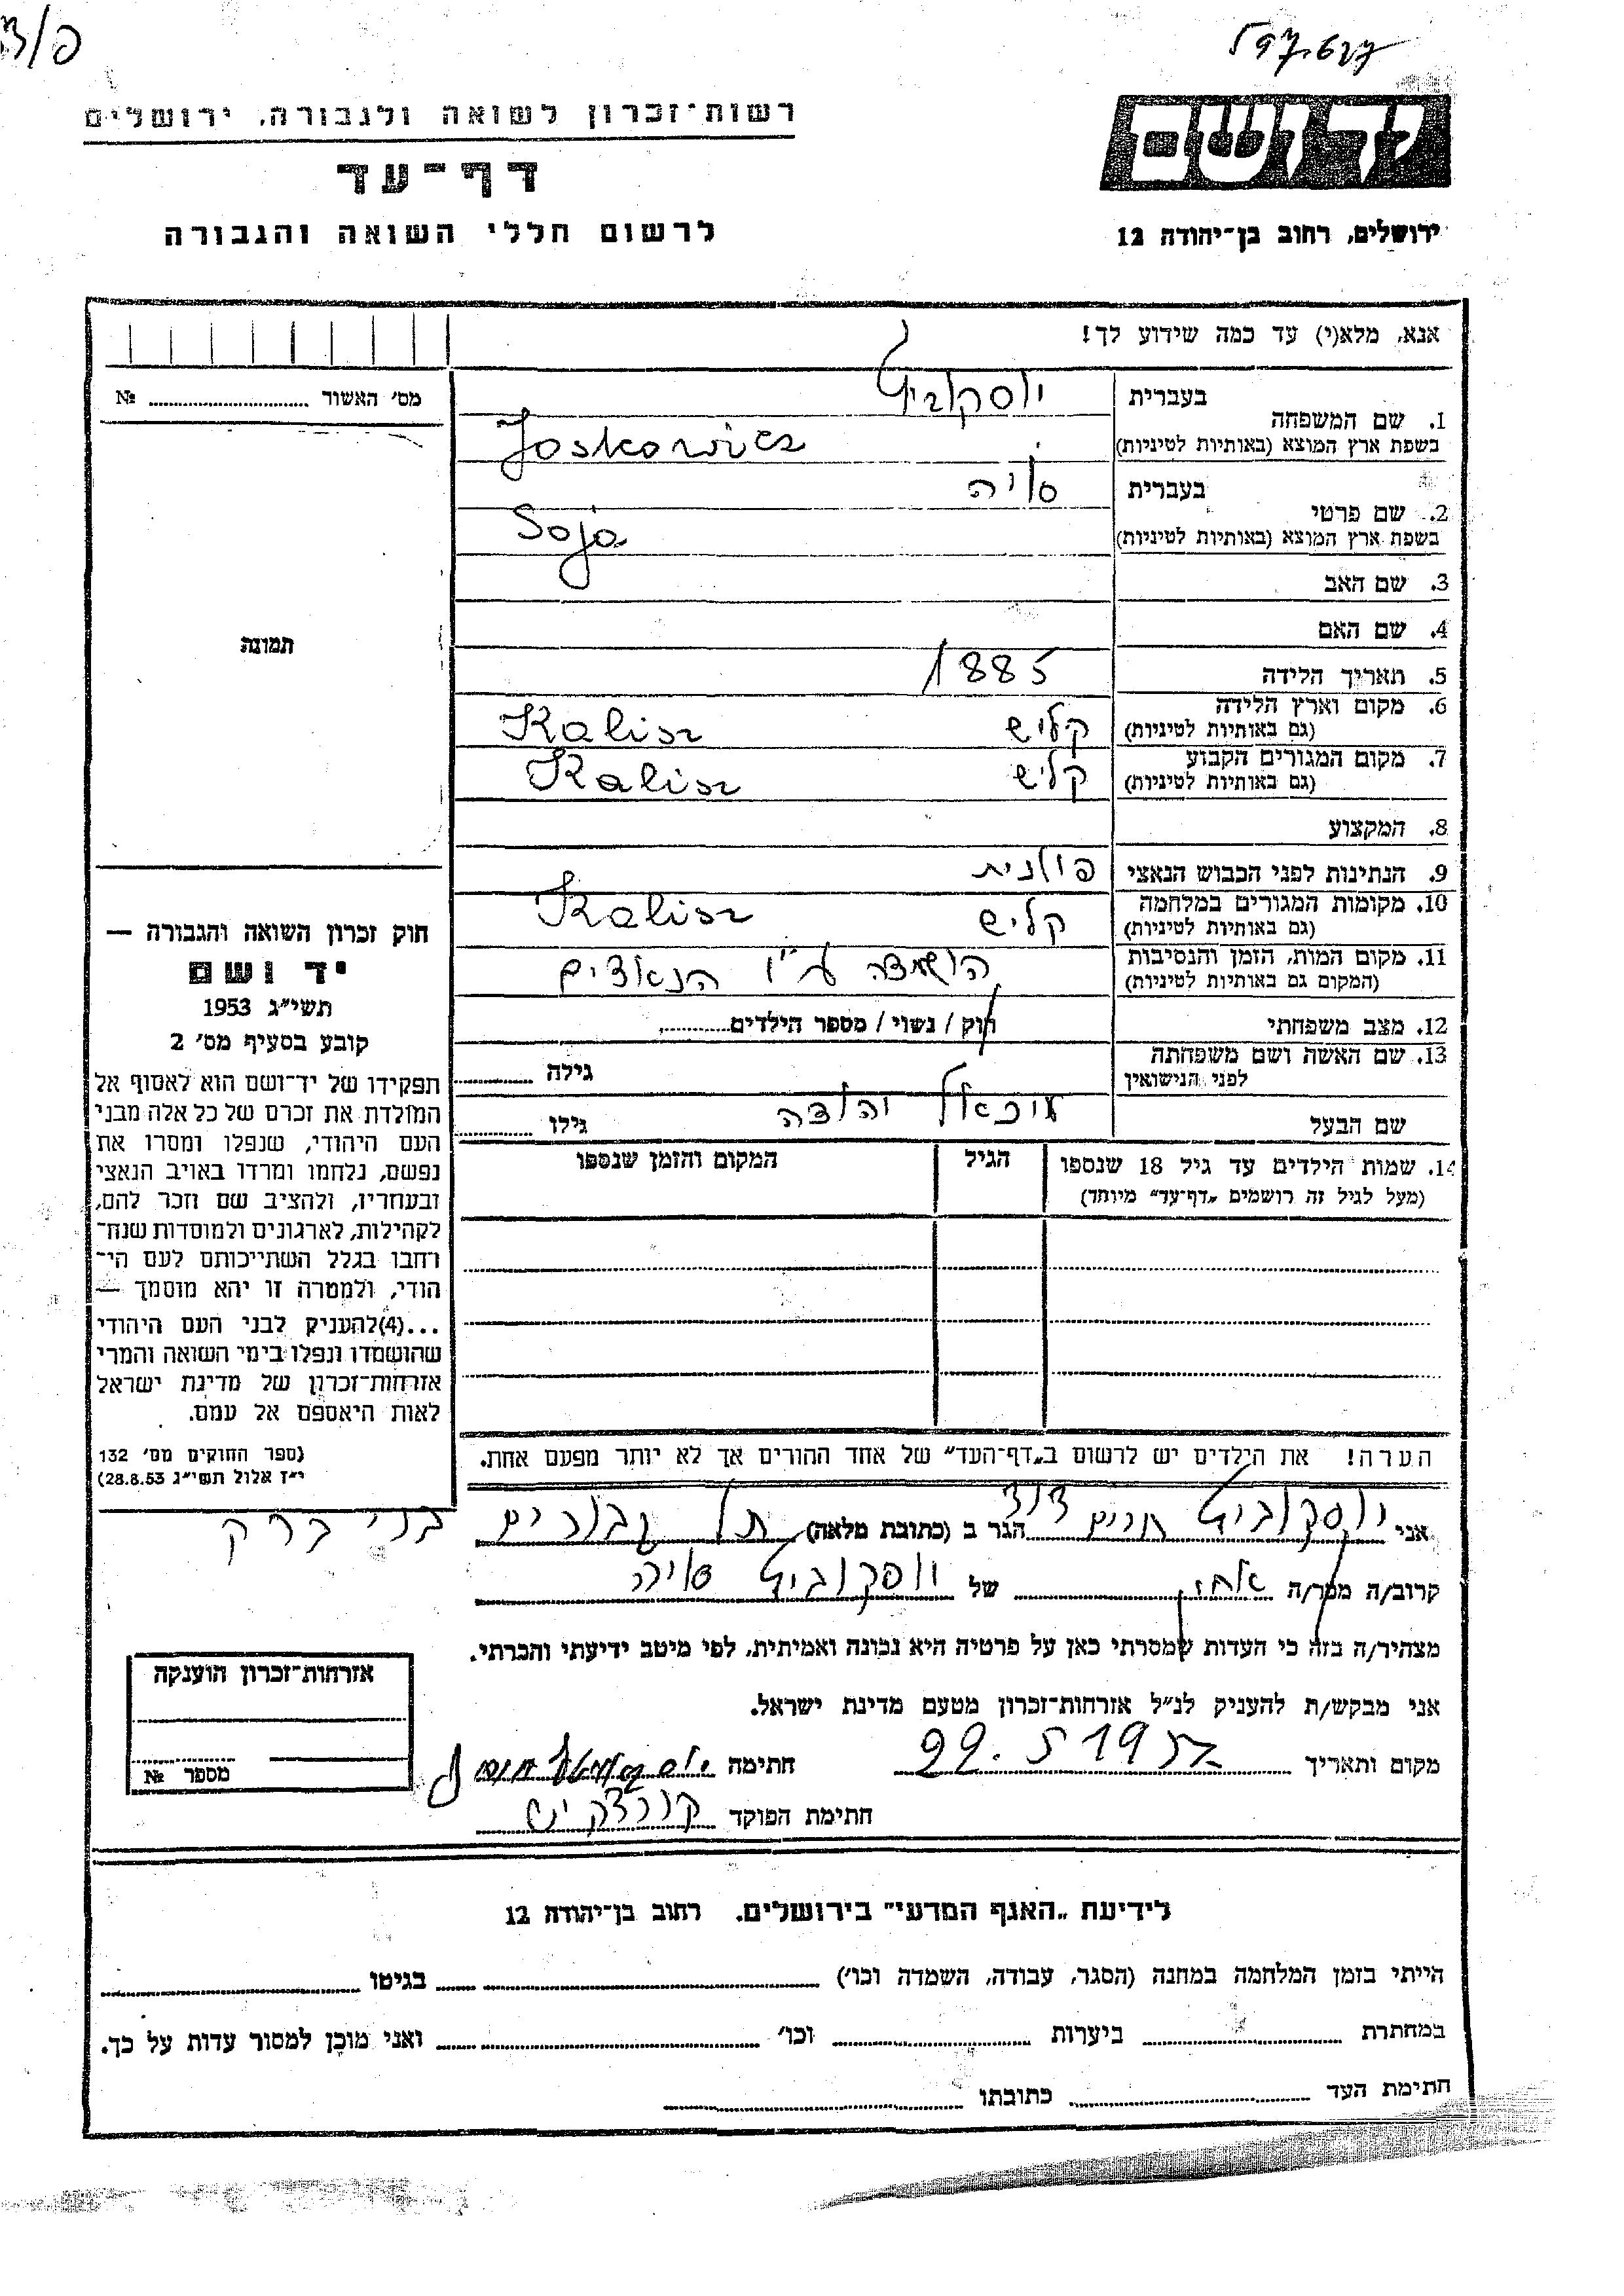 597.627
רשות־זכרון לשואה ולגבורה, ירושלים
דף־עד
לרשום חללי השואה והגבורה
יד ושם
ירושלים, רחוב בן־יהודה 12
אנא, מלא(י) עד כמה שידוע לך!
מס' האשור № 
1. שם המשפחה בעברית יוסקוביץ
בשפת ארץ המוצא (באותיות לטיניות) Joskowicz
2. שם פרטי בעברית סויה
בשפת ארץ המוצא (באותיות לטיניות) Soja
3. שם האב
4. שם האם
5. תאריך הלידה 1885
6. מקום וארץ הלידה (גם באותיות לטיניות) קליש Kalisz
7. מקום המגורים הקבוע (גם באותיות לטיניות) קליש Kalisz
8. המקצוע
9. הנתינות לפני הכבוש הנאצי פולנית
10. מקומות המגורים במלחמה (גם באותיות לטיניות) קליש Kalisz
11. מקום המות, הזמן והנסיבות (המקום גם באותיות לטיניות) הושמדה ע"י הנאצים
12. מצב משפחתי רווק / נשוי / מספר הילדים
13. שם האשה ושם משפחתה לפני הנישואין גילה
שם הבעל מיכאל יהודה גילו
14. שמות הילדים עד גיל 18 שנספו הגיל המקום והזמן שנספו
(מעל לגיל זה רושמים „דף־עד" מיוחד)
הערה! את הילדים יש לרשום ב„דף־העד" של אחד ההורים אך לא יותר מפעם אחת.
תמונה
חוק זכרון השואה והגבורה —
יד ושם
תשי"ג 1953
קובע בסעיף מס' 2
תפקידו של יד־ושם הוא לאסוף אל
המולדת את זכרם של כל אלה מבני
העם היהודי, שנפלו ומסרו את
נפשם, נלחמו ומרדו באויב הנאצי
ובעוזריו, ולהציב שם וזכר להם,
לקהילות, לארגונים ולמוסדות שנח־
רבו בגלל השתייכותם לעם הי־
הודי, ולמטרה זו יהא מוסמך —
...(4)להעניק לבני העם היהודי
שהושמדו ונפלו בימי השואה והמרי
אזרחות־זכרון של מדינת ישראל
לאות היאספם אל עמם.
(ספר החוקים מס' 132
י"ז אלול תשי"ג 28.8.53)
אני יוסקוביץ חיים דוד הגר ב (כתובת מלאה) תל גבורים בני ברק
קרוב/ה מכר/ה אחי של יוסקוביץ סויה
מצהיר/ה בזה כי העדות שמסרתי כאן על פרטיה היא נכונה ואמיתית, לפי מיטב ידיעתי והכרתי.
אני מבקש/ת להעניק לנ"ל אזרחות־זכרון מטעם מדינת ישראל.
מקום ותאריך 22.5 1957 חתימה יוסקוביץ חיים
חתימת הפוקד
אזרחות־זכרון הוענקה
מספר №
לידיעת „האגף המדעי" בירושלים. רחוב בן־יהודה 12
הייתי בזמן המלחמה במחנה (הסגר, עבודה, השמדה וכו') בגיטו
במחתרת ביערות וכו' ואני מוכן למסור עדות על כך.
חתימת העד כתובתו